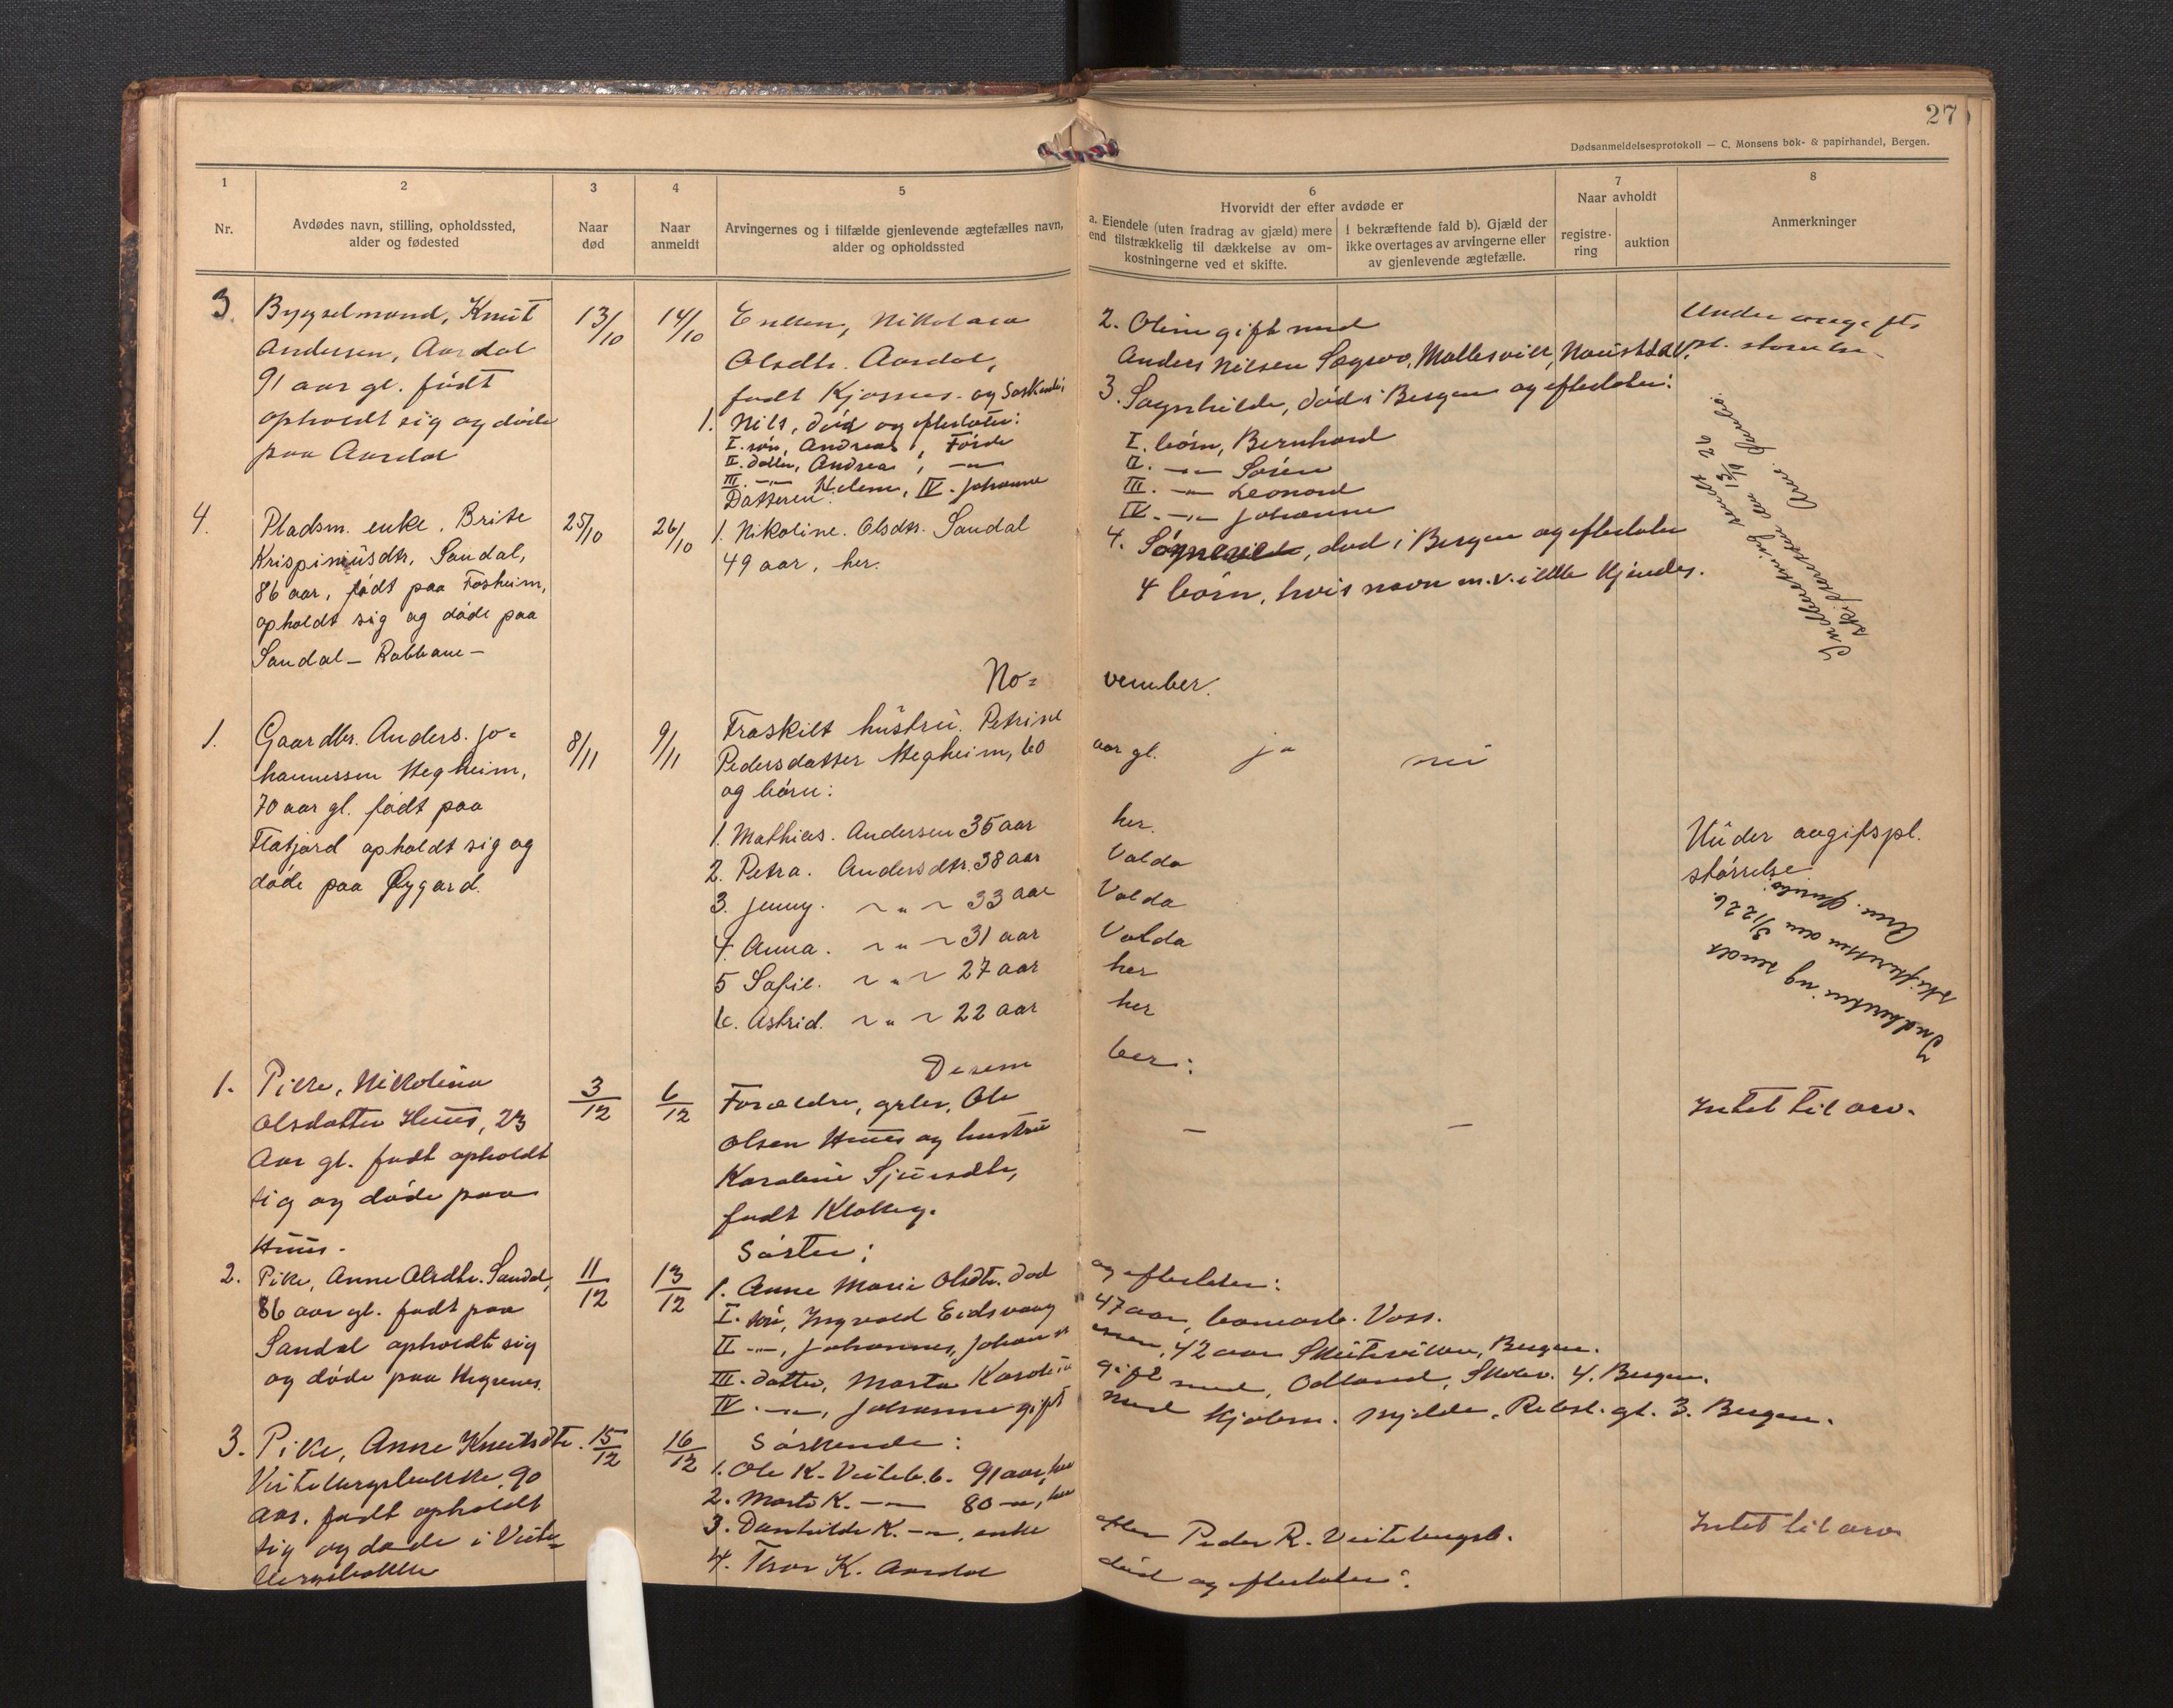 27
Dødsanmeldelsesprotokoll — C. Monsens bok- & papirhandel, Bergen.
1
Nr.
2
Avdødes navn, stilling, opholdssted,
alder og fødested
3
Naar
død
4
Naar
anmeldt
5
Arvingernes og i tilfælde gjenlevende ægtefælles navn,
alder og opholdssted
6
Hvorvidt der efter avdøde er
a. Eiendele (uten fradrag av gjæld) mere
end tilstrækkelig til dækkelse av om-
kostningerne ved et skifte.
I bekræftende fald b). Gjæld der
ikke overtages av arvingerne eller
av gjenlevende ægtefælle.
7
Naar avholdt
registre-
ring
auktion
8
Anmerkninger
3.
Bygselmand, Knut
Andersen, Aardal
91 aar gl. født
opholdt sig og døde
paa Aardal
13/10
14/10
Enken, Nikolava
Olsdtr. Aardal,
født Kjøsnes. og Søskende:
1. Nils, død og efterlater:
I. søn, Andreas, Førde
II. datter, Andrea, -"-
III. -"- Helene, IV. Johanne
2. Oline gift med
Anders Nilsen Sægrov, Naustdal,
3. Sygnhilde, død i Bergen og efterlater:
I. børn, Bernhard
II. -"- Søren
III. -"- Leonard
IV. -"- Johanne
4. død i Bergen og efterlater
4 børn, hvis navn m.v. ikke kjendes.
Under avgifts
pl. størrelse
Indberetning sendt
skifteretten den 13/11 26
4.
Pladsm. enke. Brite
Krispiniusdtr. Sandal,
86 aar, født paa Fosheim,
opholdt sig og døde paa
Sandal – Rabbane –
25/10
26/10
Datteren:
1. Nikoline. Olsdtr. Sandal
49 aar, her.
No=vember.
1.
Gaardbr. Anders. Jo=
hannessen Hegheim,
70 aar gl. født paa
Flatjord opholdt sig og
døde paa Øygard.
8/11
9/11
Fraskilt hustru. Petrine
Pedersdatter Hegheim, 60 aar gl.
og børn:
1. Mathias. Andersen 35 aar her.
2. Petra. Andersdtr. 38 aar Volda
3. Jenny. ~ " ~ 33 aar Volda
4. Anna. ~ " ~ 31 aar Volda
5 Sofie. ~ " ~ 27 aar her
6. Astrid. ~ " ~ 22 aar her
ja
nei
Under avgiftspl.
størrelse
Indberetning sendt
skifteretten den 3/12 26.
Desember:
1.
Pike, Nikolina
Olsdatter Huus, 23
Aar gl. født opholdt
sig og døde paa
Huus.
3/12
6/12
Forældre, grbr, Ole
Olsen Huus og hustru
Karoline Sjursdtr,
født Klakeg.
–
–
Intet til arv.
2.
Pike, Anne Olsdtr. Sandal,
86 aar gl. født paa
Sandal opholdt sig
og døde paa Hegrenes.
11/12
13/12
Søster:
1. Anne Marie Olsdtr. død og efterlater:
I. søn, Ingvald Eidsvaag 47 aar, Voss.
II -"-, Johannes, Johannessen, 42 aar Skuteviken, Bergen.
III. datter, Marta Karoline gift med, Odland, Skolev. 4. Bergen.
IV. -"-, Johanne gift med Nylde, Bergen.
3.
Pike, Anne Knutsdtr.
Veitebergsbakke, 90
aar. født opholdt
sig og døde i Veite=
bergsbakke
15/12
16/12
Søskende:
1. Ole K. Veiteb.b. 91 aar, her
2. Marte K. -"- 80 -"-, her
3. Danhilde K. -"-, enke efter Peder R. Veitebergsb.
4. Thor K. Aardal død og efterlater:
Intet til arv